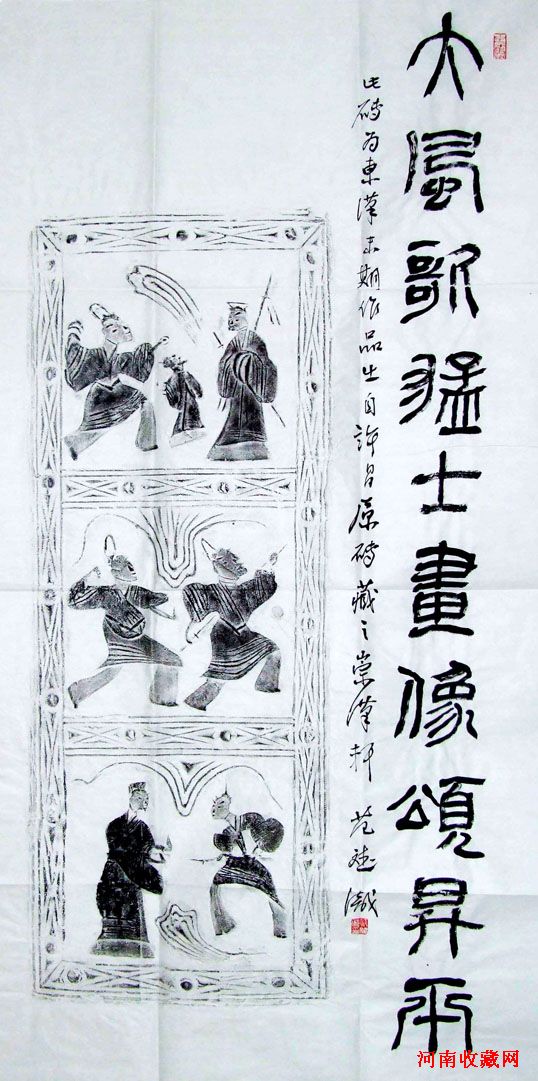 大風歌猛士畫像頌昇平
此磚为東漢末期作品出自許昌原磚藏之崇漢軒 范
河南收藏网